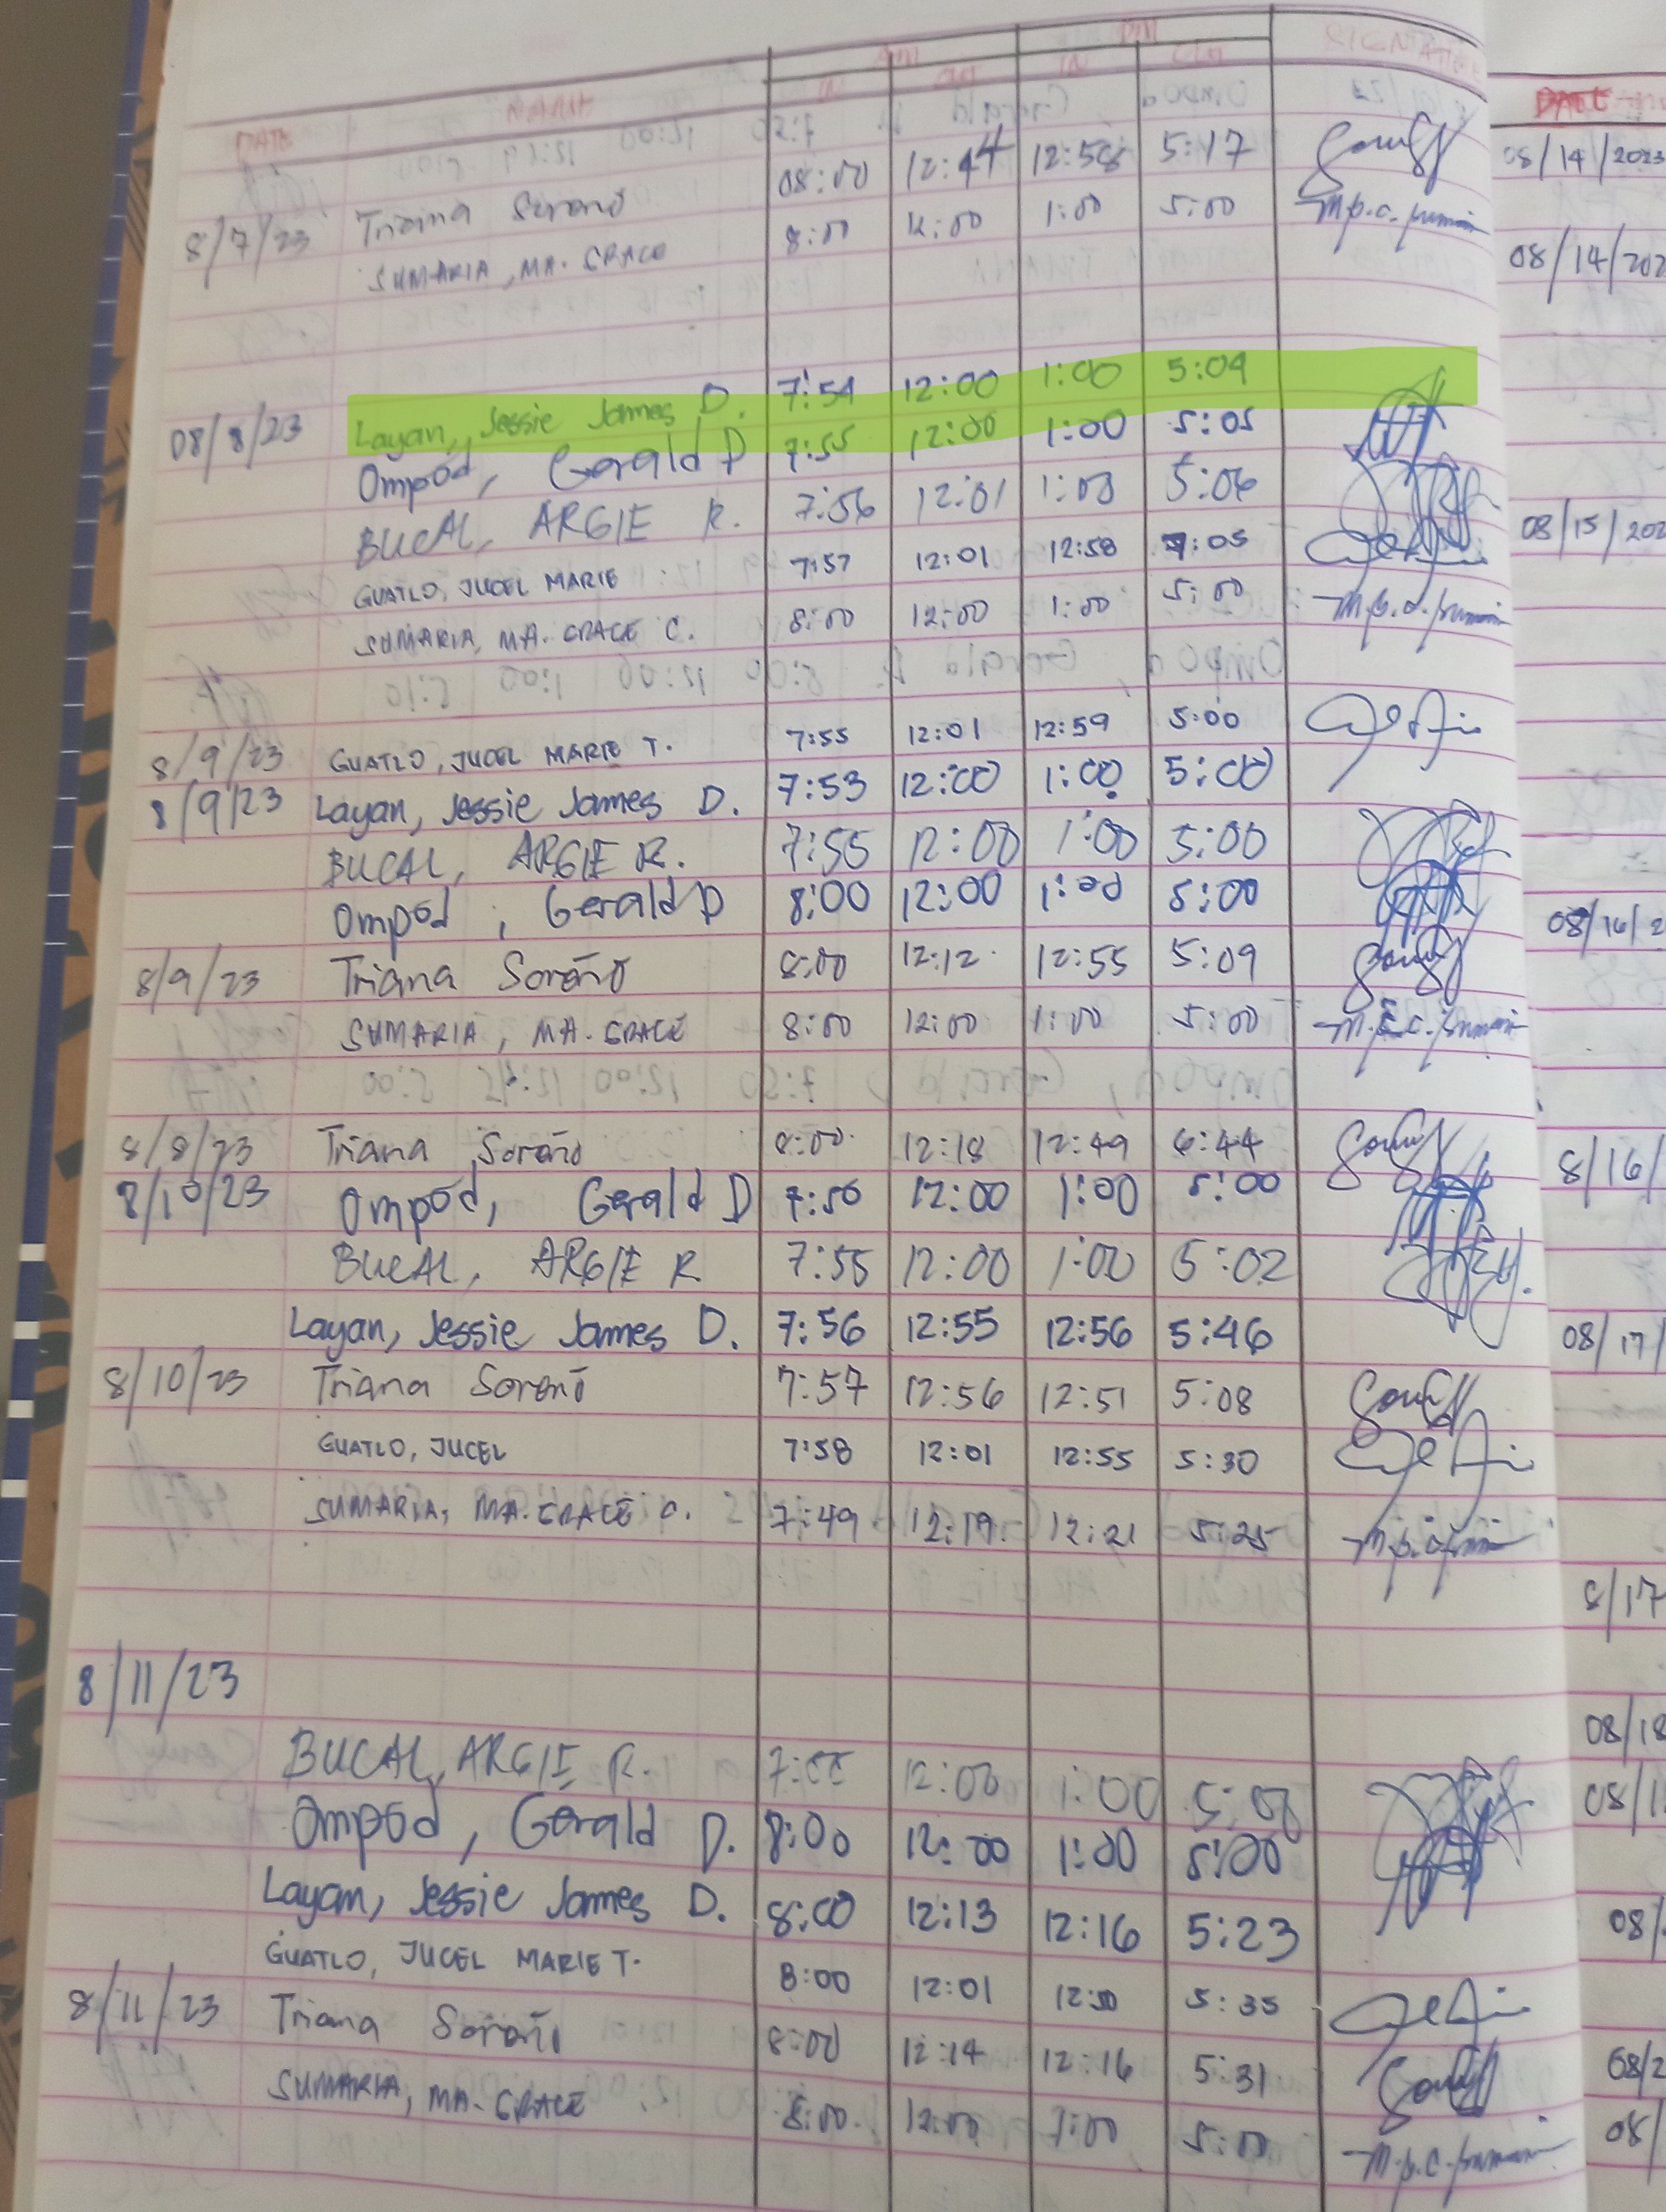 DATE NAME AM PM SIGNATURE
IN OUT IN OUT
8/7/23 Triana Soroño 08:00 12:44 12:58 5:17
SUMARIA, MA. GRACE 8:00 12:00 1:00 5:00
08/8/23 Layan, Jessie James D. 7:54 12:00 1:00 5:04
Ompod, Gerald D 7:55 12:00 1:00 5:05
BUCAL, ARGIE R. 7:56 12:01 1:00 5:06
GUATLO, JUCEL MARIE 7:57 12:01 12:58 :05
SUMARIA, MA. GRACE C. 8:00 12:00 1:00 5:00
8/9/23 GUATLO, JUCEL MARIE T. 7:55 12:01 12:59 5:00
8/9/23 Layan, Jessie James D. 7:53 12:00 1:00 5:00
BUCAL, ARGIE R. 7:55 12:00 1:00 5:00
Ompod, Gerald D 8:00 12:00 1:00 5:00
8/9/23 Triana Soroño 8:00 12:12 12:55 5:09
SUMARIA, MA. GRACE 8:00 12:00 1:00 5:00
8/8/23 Triana Soroño 8:00 12:18 12:49 6:44
8/10/23 Ompod, Gerald D 7:50 12:00 1:00 5:00
BUCAL, ARGIE R 7:55 12:00 1:00 5:02
Layan, Jessie James D. 7:56 12:55 12:56 5:46
8/10/23 Triana Soroño 7:57 12:56 12:51 5:08
GUATLO, JUCEL 7:58 12:01 12:55 5:30
SUMARIA, MA. GRACE C. 7:49 12:19 12:21 5:25
8/11/23
BUCAL, ARGIE R. 12:00 1:00 5:08
Ompod, Gerald D. 8:00 12:00 1:00 5:00
Layan, Jessie James D. 8:00 12:13 12:16 5:23
GUATLO, JUCEL MARIE T. 8:00 12:01 12:50 5:35
8/11/23 Triana Soroño 8:00 12:14 12:16 5:31
SUMARIA, MA. GRACE 8:00 12:00 1:00 5:00
DATE
08/14/2023
08/14/202
08/15/202
08/16/2
8/16/
08/17/
8/17
08/18
08/1
08/
08/2
08/